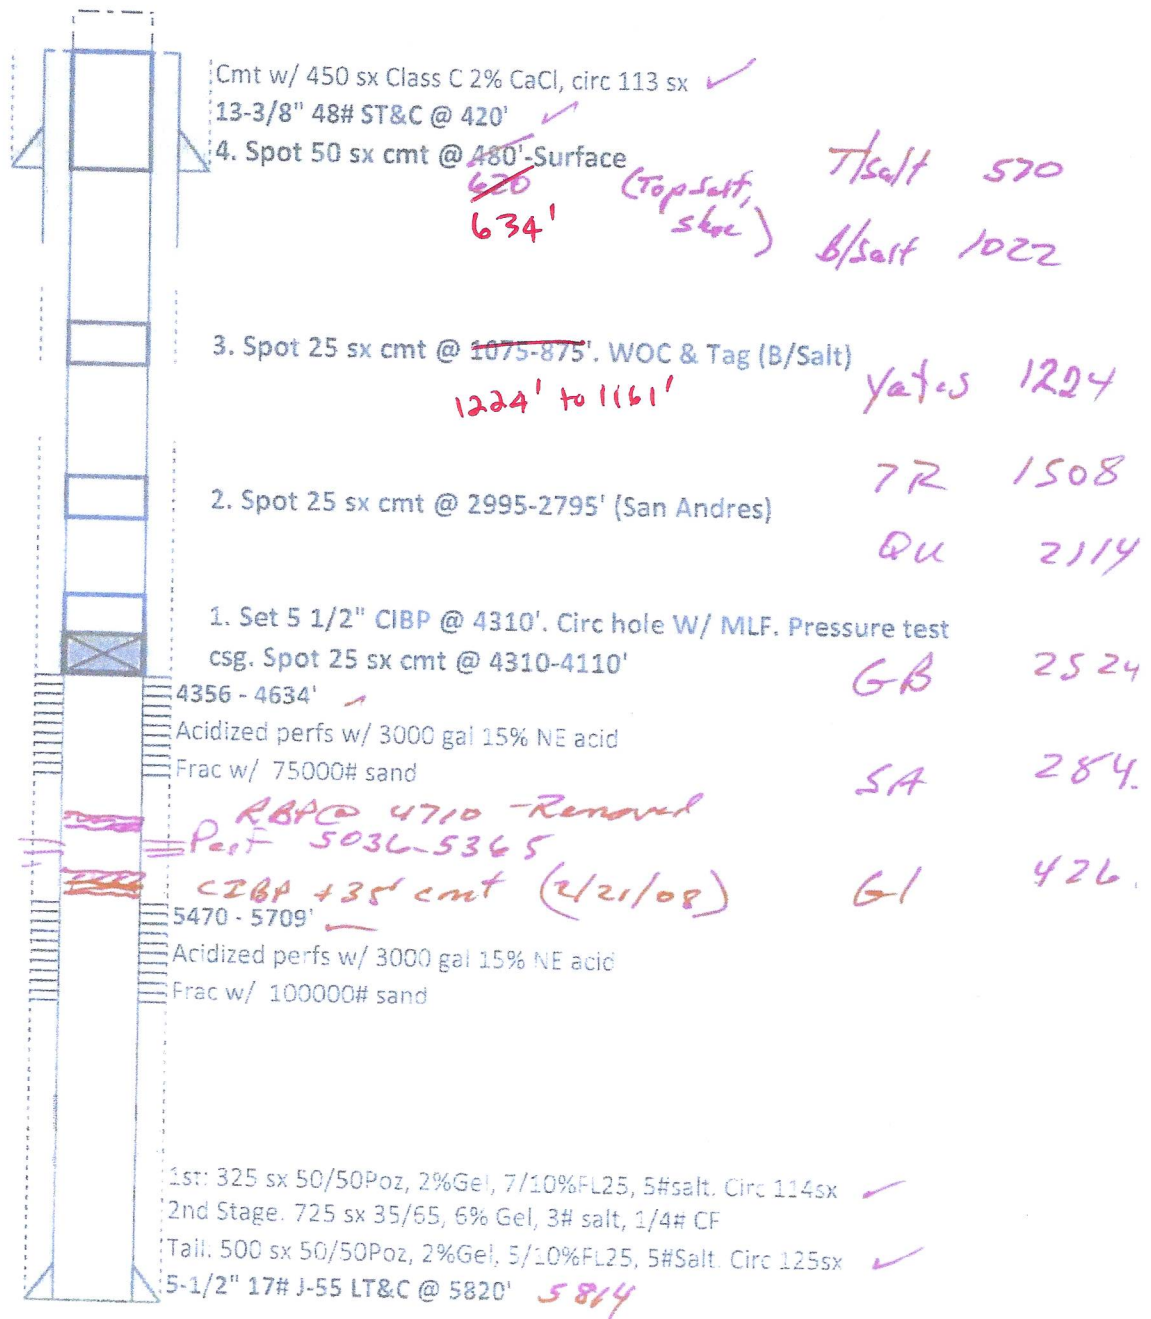 Cmt w/ 450 sx Class C 2% CaCl, circ 113 sx
13-3/8" 48# ST&C @ 420'
4. Spot 50 sx cmt @ 480'-Surface
620 (Top Salt, shoe)
634'
T/salt 570
B/salt 1022
3. Spot 25 sx cmt @ 1075-875'. WOC & Tag (B/Salt)
1224' to 1161'
Yates 1224
7R 1508
2. Spot 25 sx cmt @ 2995-2795' (San Andres)
Qu 2114
1. Set 5 1/2" CIBP @ 4310'. Circ hole W/ MLF. Pressure test
csg. Spot 25 sx cmt @ 4310-4110'
GB 2524
4356 - 4634'
Acidized perfs w/ 3000 gal 15% NE acid
Frac w/ 75000# sand
SA 284.
RBP@ 4710 - Removed
Perf 5036-5365
CIBP +35' cmt (2/21/08)
Gl 426.
5470 - 5709'
Acidized perfs w/ 3000 gal 15% NE acid
Frac w/ 100000# sand
1st: 325 sx 50/50Poz, 2%Gel, 7/10%FL25, 5#salt. Circ 114sx
2nd Stage. 725 sx 35/65, 6% Gel, 3# salt, 1/4# CF
Tail. 500 sx 50/50Poz, 2%Gel, 5/10%FL25, 5#Salt. Circ 125sx
5-1/2" 17# J-55 LT&C @ 5820' 5814